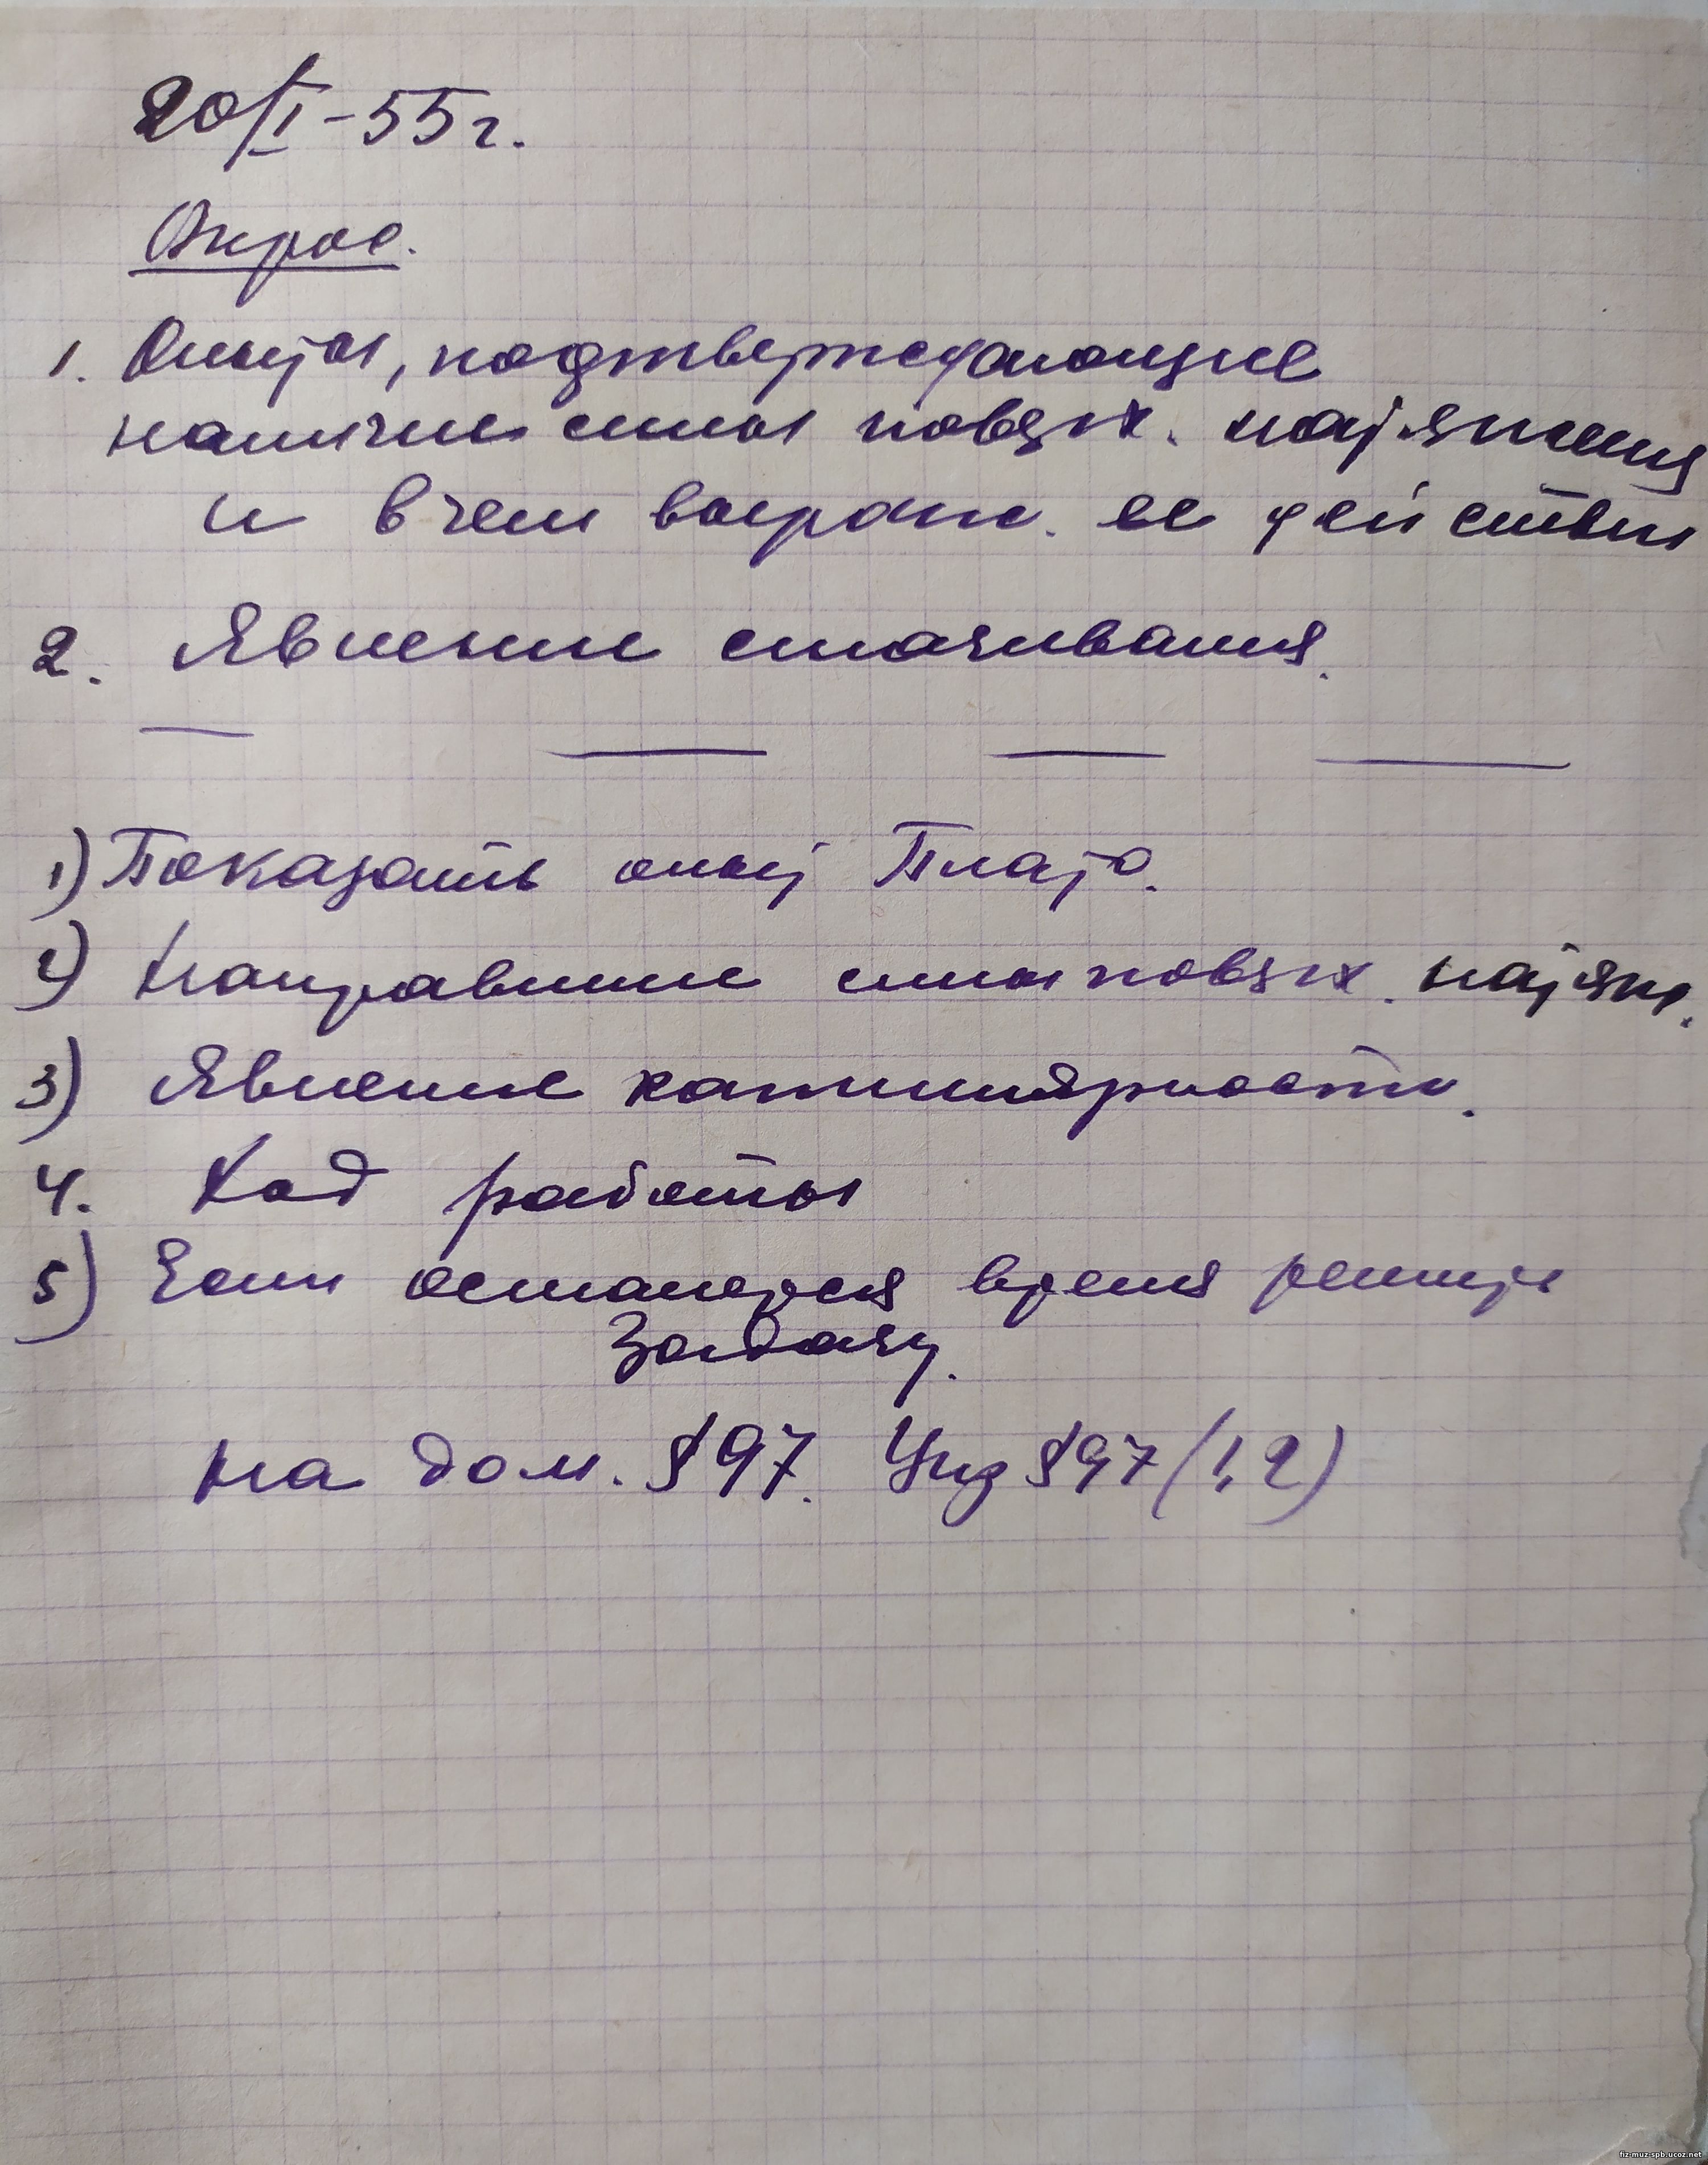 20/I-55г.
Опрос.
1. Опыты, подтверждающие
наличие силы поверх. натяжения
и в чем выраж. ее действие
2. Явление смачивания.
1) Показать опыт Плато.
2) Направление силы поверх. натяж.
3) Явление капиллярности.
4. Ход работы
5) Если останется время решить
Задачу.
на дом. §97. Упр §97 (1,2)
fiz-muz-spb.ucoz.net